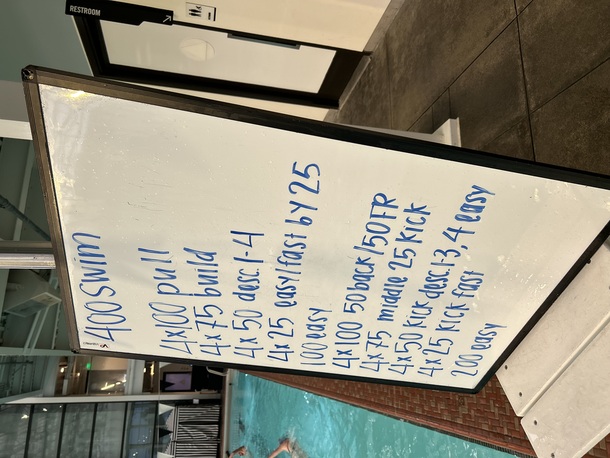 RESTROOM
400 swim
4x100 pull
4x75 build
4x50 desc. 1-4
4x25 easy/fast by 25
100 easy
4x100 50 back/50 FR
4x75 middle 25 kick
4x50 kick desc. 1-3, 4 easy
4x25 kick fast
200 easy